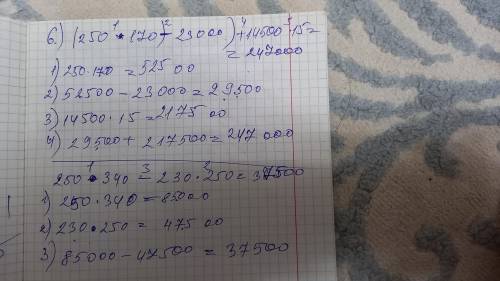 6.) (250 · 170 - 23000) + 14500 · 15 =
= 247000
1) 250 · 170 = 525 00
2) 52500 - 23000 = 29500
3) 14500 · 15 = 2175 00
4) 29500 + 217500 = 247 000
250 · 340 - 230 · 250 = 37500
1) 250 · 340 = 85000
2) 230 · 250 = 475 00
3) 85000 - 47500 = 37500